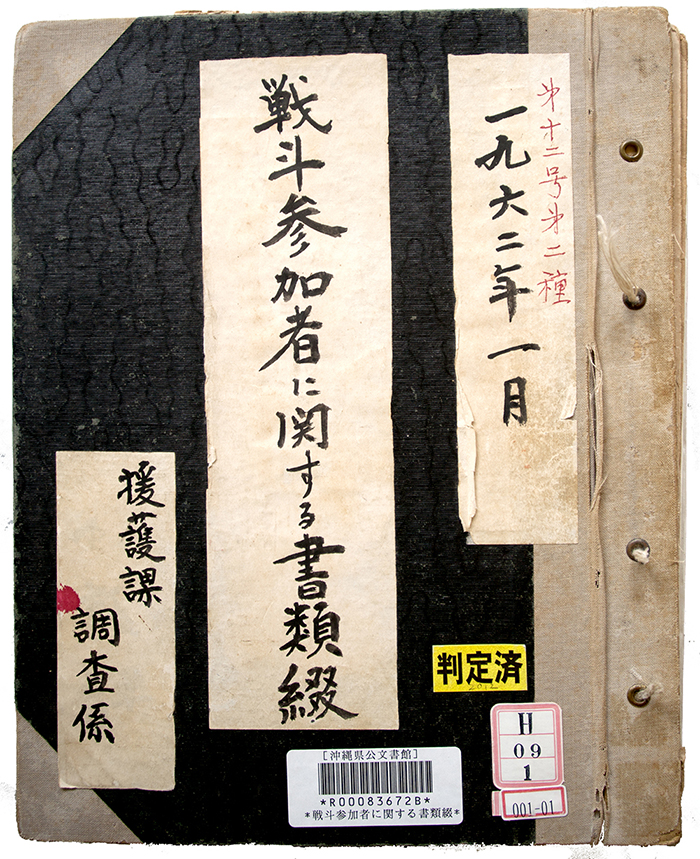 第十二号第二種
一九六二年一月
戦斗参加者に関する書類綴
援護課
調査係
判定済
2012
H
09
1
001-01
[沖縄県公文書館]
*R00083672B*
*戦斗参加者に関する書類綴*